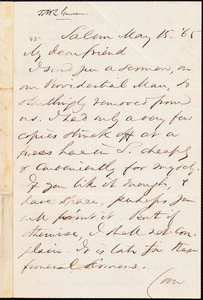 Salem May 15. '65
My dear friend
I send you a Sermon, on
our Providential Man, so
startlingly removed from
us. I had only a very few
copies struck off at a
press here in S. cheaply
& conveniently for myself.
If you like it enough, &
have space, perhaps you
will print it. But if
otherwise, I shall not com-
plain. It is late for these
funeral Sermons.
(over